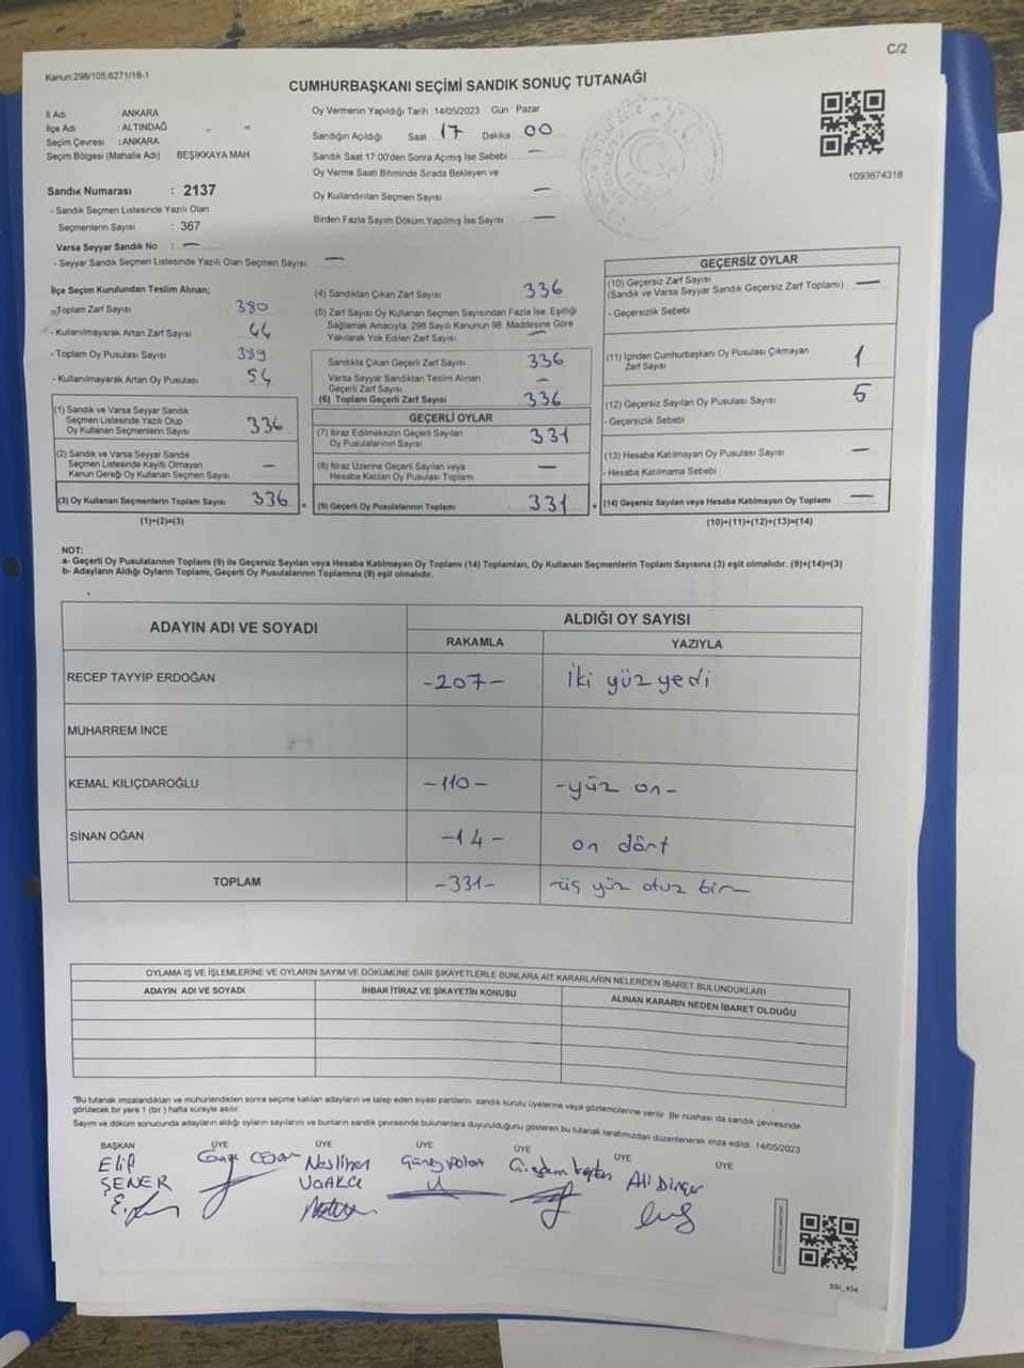 C/2
Kanun:298/105;6271/18-1
CUMHURBAŞKANI SEÇİMİ SANDIK SONUÇ TUTANAĞI
İl Adı : ANKARA
İlçe Adı : ALTINDAĞ
Seçim Çevresi : ANKARA
Seçim Bölgesi (Mahalle Adı) BEŞİKKAYA MAH.
Sandık Numarası : 2137
- Sandık Seçmen Listesinde Yazılı Olan
Seçmenlerin Sayısı : 367
Varsa Seyyar Sandık No : —
- Seyyar Sandık Seçmen Listesinde Yazılı Olan Seçmen Sayısı: —
Oy Vermenin Yapıldığı Tarih: 14/05/2023 Gün : Pazar
Sandığın Açıldığı Saat 17 Dakika : 00
Sandık Saat 17:00'den Sonra Açılmış İse Sebebi —
Oy Verme Saati Bitiminde Sırada Bekleyen ve
Oy Kullandırılan Seçmen Sayısı —
Birden Fazla Sayım Döküm Yapılmış İse Sayısı —
1093674318
İlçe Seçim Kurulundan Teslim Alınan;
- Toplam Zarf Sayısı 380
- Kullanılmayarak Artan Zarf Sayısı 44
- Toplam Oy Pusulası Sayısı 389
- Kullanılmayarak Artan Oy Pusulası 54
(1) Sandık ve Varsa Seyyar Sandık
Seçmen Listesinde Yazılı Olup
Oy Kullanan Seçmenlerin Sayısı 336
(2) Sandık ve Varsa Seyyar Sandık
Seçmen Listesinde Kayıtlı Olmayan
Kanun Gereği Oy Kullanan Seçmen Sayısı —
(3) Oy Kullanan Seçmenlerin Toplam Sayısı 336
(1)+(2)=(3)
(4) Sandıktan Çıkan Zarf Sayısı 336
(5) Zarf Sayısı Oy Kullanan Seçmen Sayısından Fazla İse, Eşitliği
Sağlamak Amacıyla, 298 Sayılı Kanunun 98. Maddesine Göre
Yakılarak Yok Edilen Zarf Sayısı —
Sandıkta Çıkan Geçerli Zarf Sayısı 336
Varsa Seyyar Sandıktan Teslim Alınan
Geçerli Zarf Sayısı —
(6) Toplam Geçerli Zarf Sayısı 336
GEÇERLİ OYLAR
(7) İtiraz Edilmeksizin Geçerli Sayılan
Oy Pusulalarının Sayısı 331
(8) İtiraz Üzerine Geçerli Sayılan veya
Hesaba Katılan Oy Pusulası Toplamı —
(9) Geçerli Oy Pusulalarının Toplamı 331
GEÇERSİZ OYLAR
(10) Geçersiz Zarf Sayısı
(Sandık ve Varsa Seyyar Sandık Geçersiz Zarf Toplamı) —
- Geçersizlik Sebebi
(11) İçinden Cumhurbaşkanı Oy Pusulası Çıkmayan
Zarf Sayısı 1
(12) Geçersiz Sayılan Oy Pusulası Sayısı 5
- Geçersizlik Sebebi
(13) Hesaba Katılmayan Oy Pusulası Sayısı —
- Hesaba Katılmama Sebebi
(14) Geçersiz Sayılan veya Hesaba Katılmayan Oy Toplamı —
(10)+(11)+(12)+(13)=(14)
NOT:
a- Geçerli Oy Pusulalarının Toplamı (9) ile Geçersiz Sayılan veya Hesaba Katılmayan Oy Toplamı (14) Toplamları, Oy Kullanan Seçmenlerin Toplam Sayısına (3) eşit olmalıdır. (9)+(14)=(3)
b- Adayların Aldığı Oyların Toplamı, Geçerli Oy Pusulalarının Toplamına (9) eşit olmalıdır.
ADAYIN ADI VE SOYADI ALDIĞI OY SAYISI
RAKAMLA YAZIYLA
RECEP TAYYİP ERDOĞAN -207- İki yüz yedi
MUHARREM İNCE
KEMAL KILIÇDAROĞLU -110- -yüz on-
SİNAN OĞAN -14- on dört
TOPLAM -331- -üç yüz otuz bir-
OYLAMA İŞ VE İŞLEMLERİNE VE OYLARIN SAYIM VE DÖKÜMÜNE DAİR ŞİKAYETLERLE BUNLARA AİT KARARLARIN NELERDEN İBARET BULUNDUKLARI
ADAYIN ADI VE SOYADI İHBAR İTİRAZ VE ŞİKAYETİN KONUSU ALINAN KARARIN NEDEN İBARET OLDUĞU
*Bu tutanak imzalandıktan ve mühürlendikten sonra seçime katılan adayların ve talep eden siyasi partilerin sandık kurulu üyelerine veya gözlemcilerine verilir. Bir nüshası da sandık çevresinde
görülecek bir yere 1 (bir) hafta süreyle asılır.
Sayım ve döküm sonucunda adayların aldığı oyların sayılarını ve bunların sandık çevresinde bulunanlara duyurulduğunu gösteren bu tutanak tarafımızdan düzenlenerek imza edildi. 14/05/2023
BAŞKAN ÜYE ÜYE ÜYE ÜYE ÜYE ÜYE
Elif
ŞENER
Neslihan
Ali Dinçer